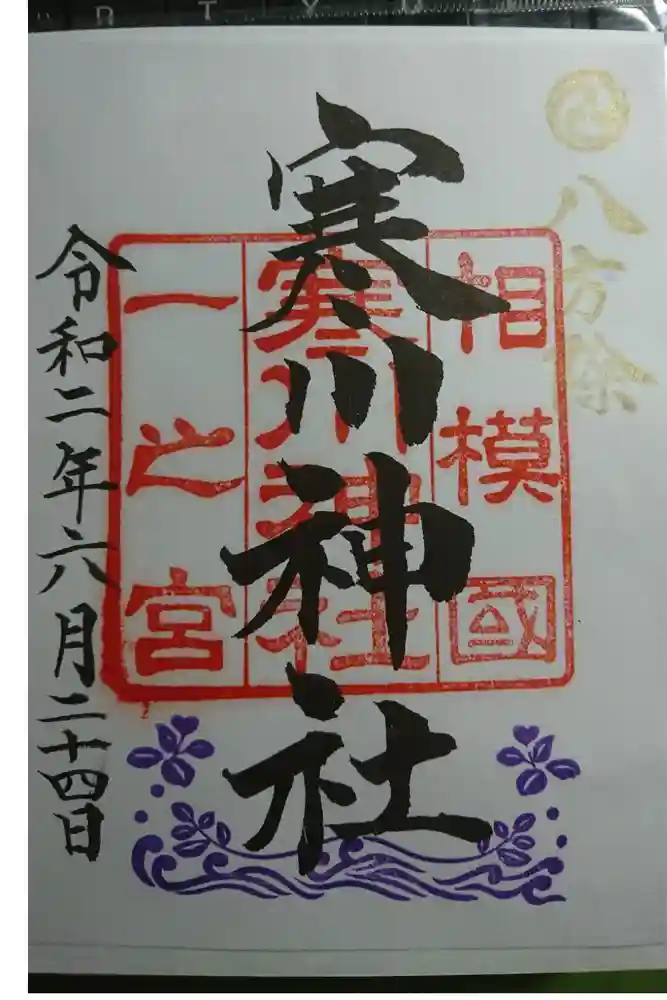 八方除
寒川神社
相模國
寒川神社
一之宮
令和二年六月二十四日